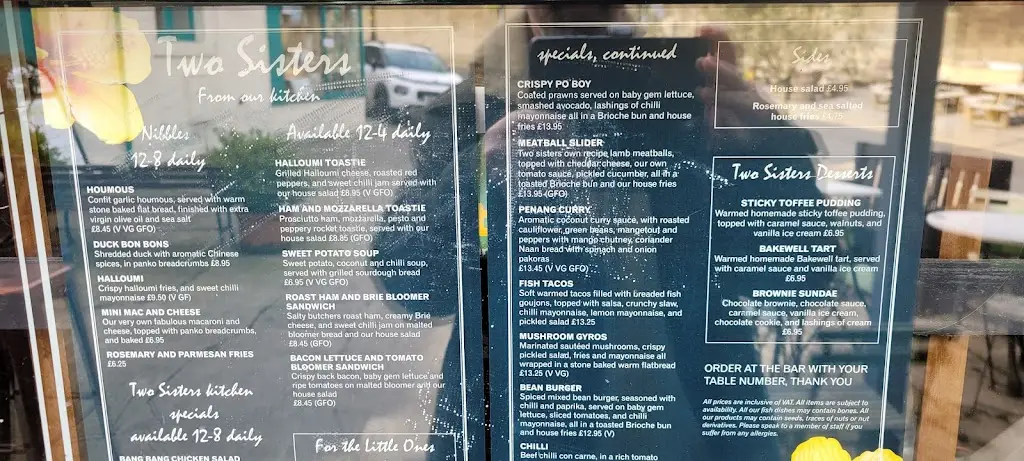 Two Sisters
From our kitchen
Nibbles
12-8 daily
HOUMOUS
Confit garlic houmous, served with warm
stone baked flat bread, finished with extra
virgin olive oil and sea salt
£8.45 (V VG GFO)
DUCK BON BONS
Shredded duck with aromatic Chinese
spices, in panko breadcrumbs £8.95
HALLOUMI
Crispy halloumi fries, and sweet chilli
mayonnaise £9.50 (V GF)
MINI MAC AND CHEESE
Our very own fabulous macaroni and
cheese, topped with panko breadcrumbs,
and baked £6.95
ROSEMARY AND PARMESAN FRIES
£6.25
Two Sisters kitchen
specials
available 12-8 daily
BANG BANG CHICKEN SALAD
Available 12-4 daily
HALLOUMI TOASTIE
Grilled Halloumi cheese, roasted red
peppers, and sweet chilli jam served with
our house salad £8.95 (V GFO)
HAM AND MOZZARELLA TOASTIE
Prosciutto ham, mozzarella, pesto and
peppery rocket toastie, served with our
house salad £8.85 (GFO)
SWEET POTATO SOUP
Sweet potato, coconut and chilli soup,
served with grilled sourdough bread
£6.95 (V VG GFO)
ROAST HAM AND BRIE BLOOMER
SANDWICH
Salty butchers roast ham, creamy Brie
cheese, and sweet chilli jam on malted
bloomer bread and our house salad
£8.45 (GFO)
BACON LETTUCE AND TOMATO
BLOOMER SANDWICH
Crispy back bacon, baby gem lettuce and
ripe tomatoes on malted bloomer and our
house salad
£8.45 (GFO)
For the Little Ones
specials, continued
CRISPY PO BOY
Coated prawns served on baby gem lettuce,
smashed avocado, lashings of chilli
mayonnaise all in a Brioche bun and house
fries £13.95
MEATBALL SLIDER
Two sisters own recipe lamb meatballs,
topped with cheddar cheese, our own
tomato sauce, pickled cucumber, all in a
toasted Brioche bun and our house fries
£13.95 (GFO)
PENANG CURRY
Aromatic coconut curry sauce, with roasted
cauliflower, green beans, mangetout and
peppers with mango chutney, coriander
Naan bread with spinach and onion
pakoras
£13.45 (V VG GFO)
FISH TACOS
Soft warmed tacos filled with breaded fish
goujons, topped with salsa, crunchy slaw,
chilli mayonnaise, lemon mayonnaise, and
pickled salad £13.25
MUSHROOM GYROS
Marinated sautéed mushrooms, crispy
pickled salad, fries and mayonnaise all
wrapped in a stone baked warm flatbread
£13.25 (V VG)
BEAN BURGER
Spiced mixed bean burger, seasoned with
chilli and paprika, served on baby gem
lettuce, sliced tomatoes, and chilli
mayonnaise, all in a toasted Brioche bun
and house fries £12.95 (V)
CHILLI
Beef chilli con carne, in a rich tomato
Sides
House salad £4.95
Rosemary and sea salted
house fries £4.75
Two Sisters Desserts
STICKY TOFFEE PUDDING
Warmed homemade sticky toffee pudding,
topped with caramel sauce, walnuts, and
vanilla ice cream £6.95
BAKEWELL TART
Warmed homemade Bakewell tart, served
with caramel sauce and vanilla ice cream
£6.95
BROWNIE SUNDAE
Chocolate brownie, chocolate sauce,
caramel sauce, vanilla ice cream,
chocolate cookie, and lashings of cream
£6.95
ORDER AT THE BAR WITH YOUR
TABLE NUMBER, THANK YOU
All prices are inclusive of VAT. All items are subject to
availability. All our fish dishes may contain bones. All
our products may contain seeds, traces of nuts or nut
derivatives. Please speak to a member of staff if you
suffer from any allergies.